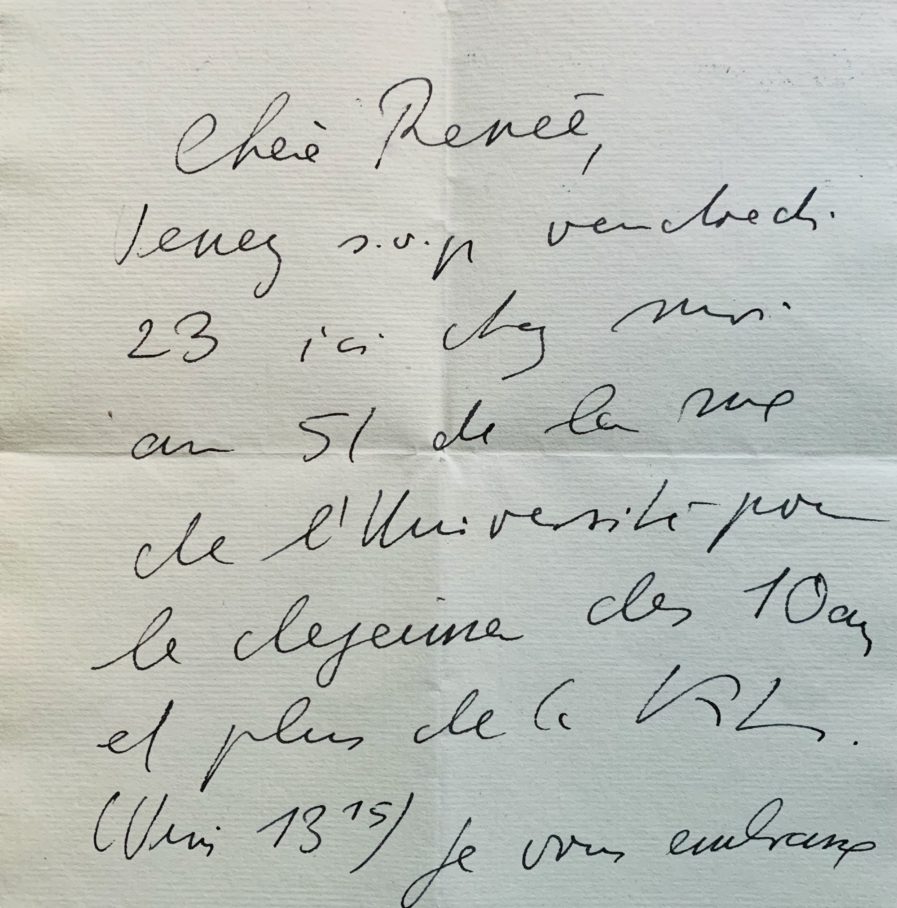 Chère Renée,
Venez s.v.p vendredi
23 ici chez moi
au 51 de la rue
de l'Université pour
le dejeuner des 10 ans
et plus de la
(Vers 13 15) Je vous embrasse